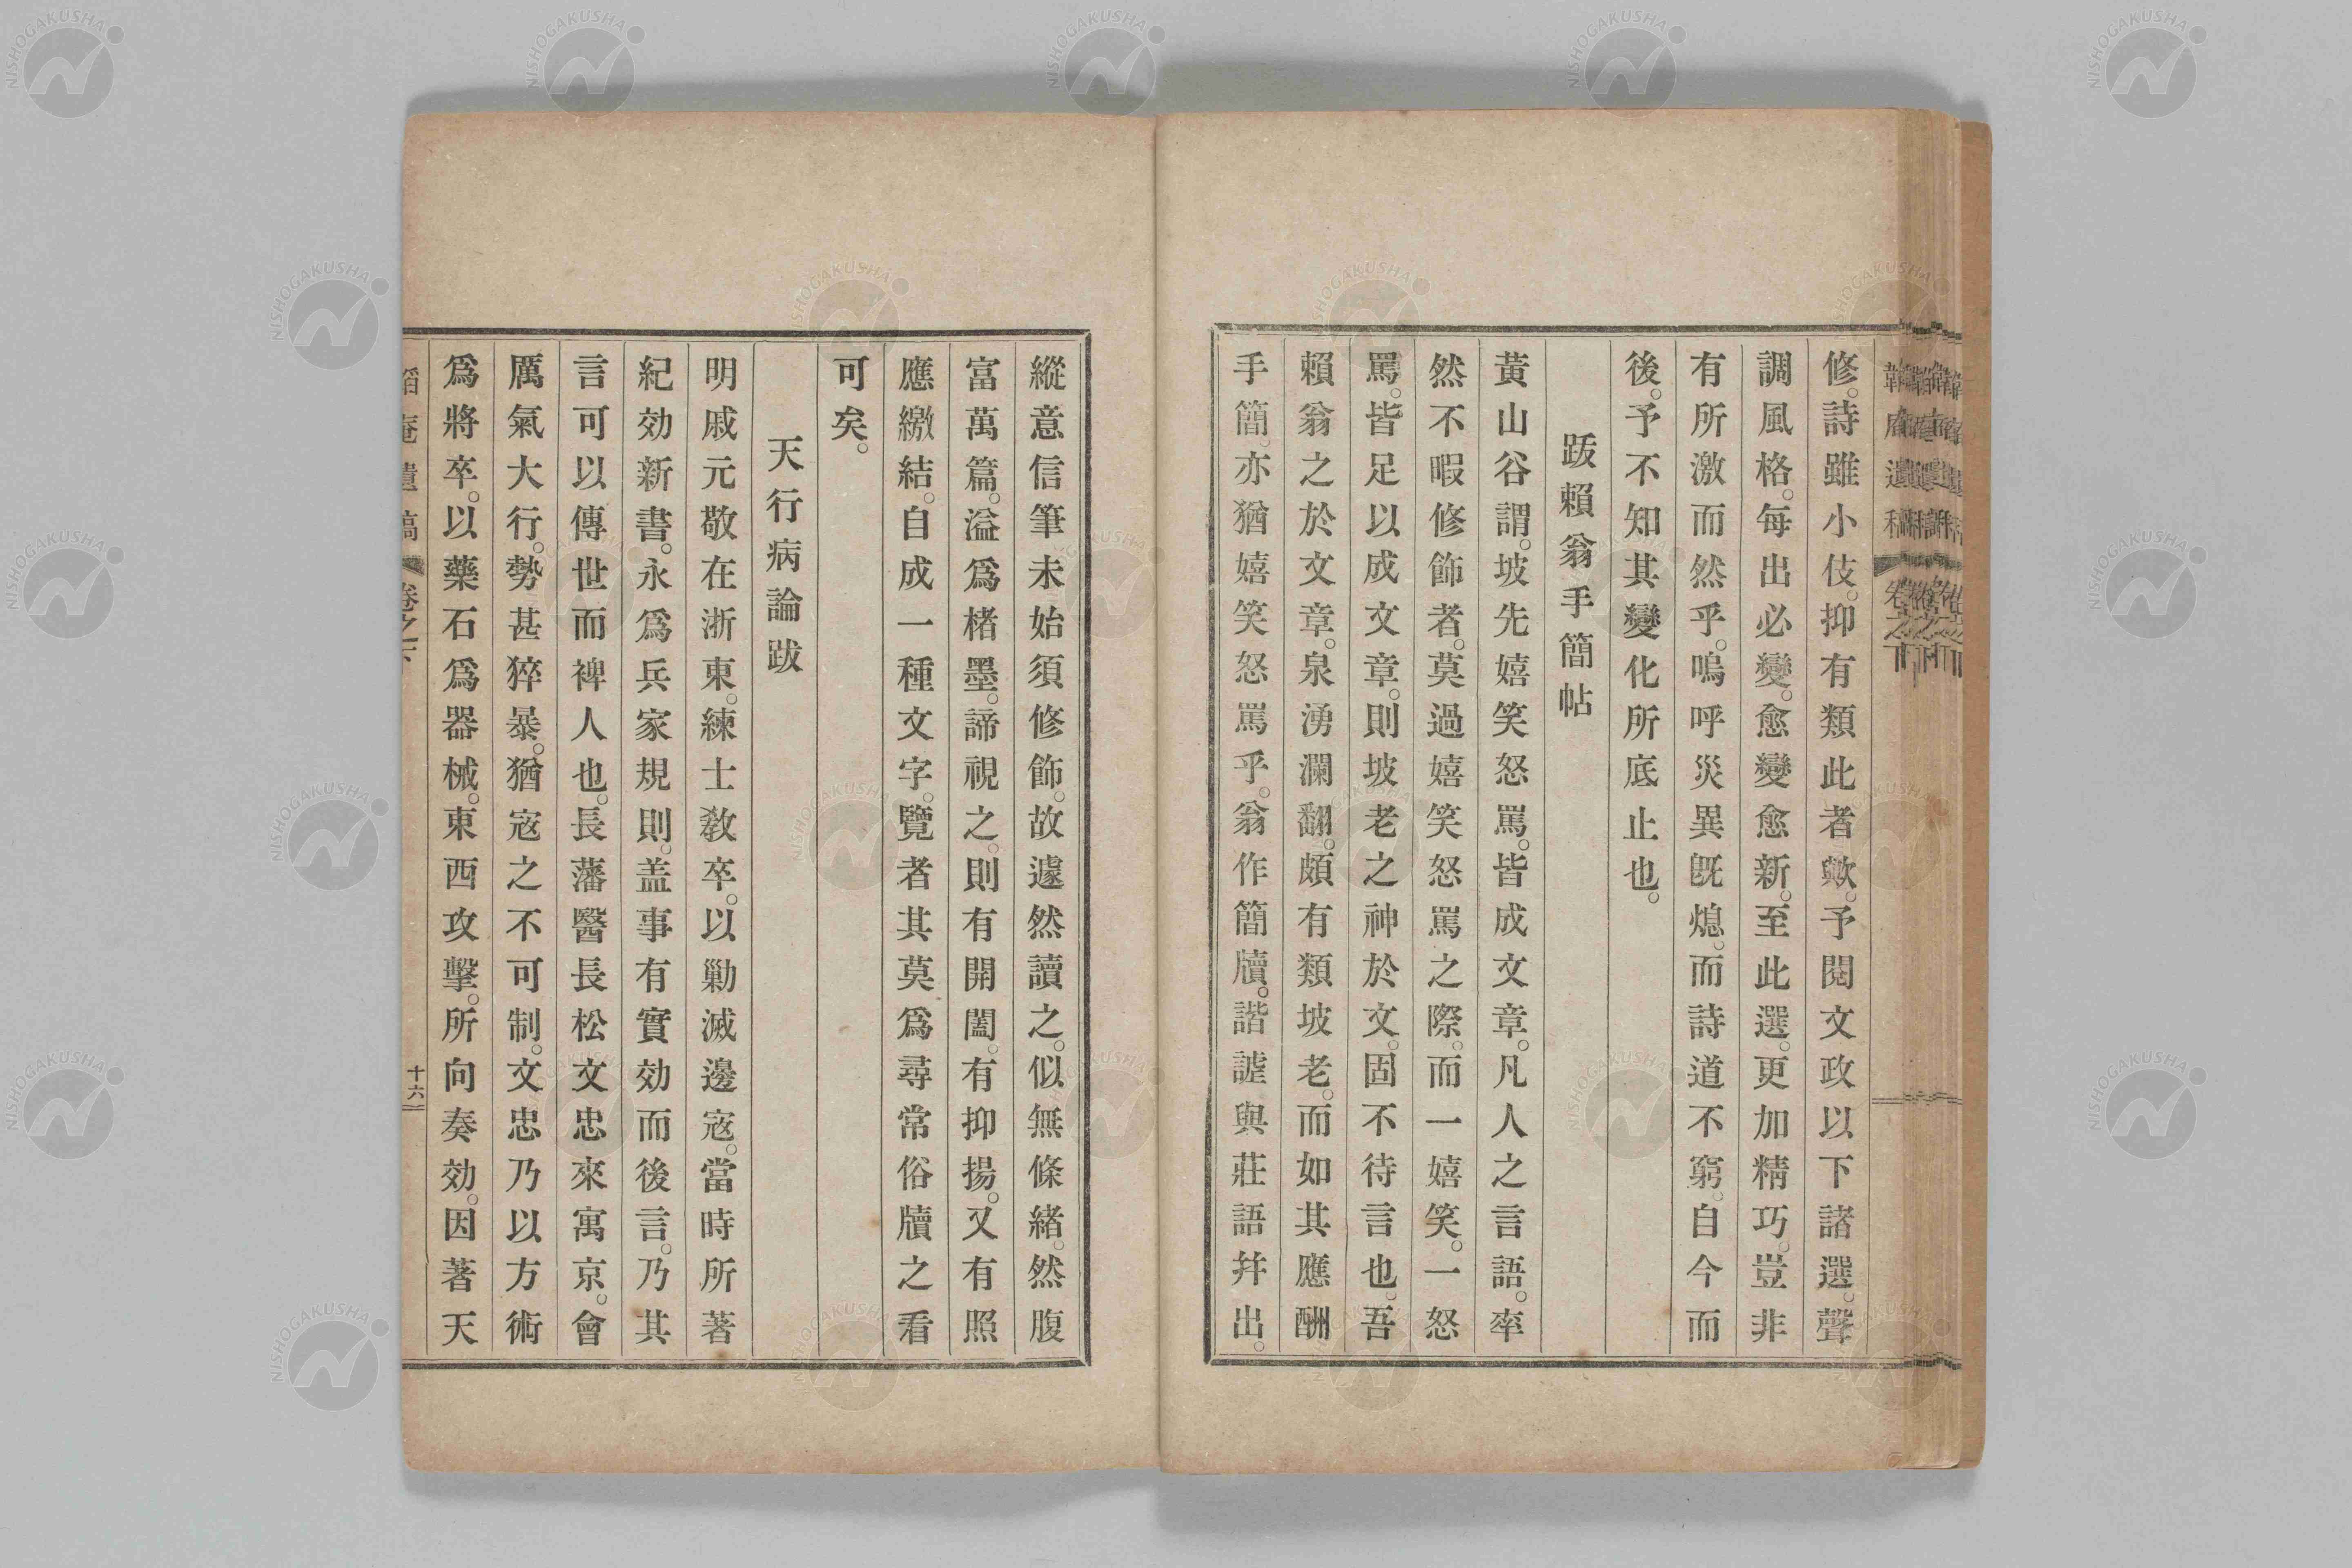 修。詩雖小伎。抑有類此者歟。予閱文政以下諸選。聲
調風格。每出必變。愈變愈新。至此選。更加精巧。豈非
有所激而然乎。嗚呼災異既熄。而詩道不窮。自今而
後。予不知其變化所底止也。
跋賴翁手簡帖
黃山谷謂。坡先嬉笑怒罵。皆成文章。凡人之言語。率
然不暇修飾者。莫過嬉笑怒罵之際。而一嬉笑。一怒
罵。皆足以成文章。則坡老之神於文。固不待言也。吾
賴翁之於文章。泉湧瀾翻。頗有類坡老。而如其應酬
手簡。亦猶嬉笑怒罵乎。翁作簡牘。諧謔與莊語幷出。
縱意信筆未始須修飾。故遽然讀之。似無條緒。然腹
富萬篇。溢爲楮墨。諦視之。則有開闔。有抑揚。又有照
應繳結。自成一種文字。覽者其莫爲尋常俗牘之看
可矣。
天行病論跋
明戚元敬在浙東。練士敎卒。以勦滅邊寇。當時所著
紀効新書。永爲兵家規則。盖事有實効而後言。乃其
言可以傳世而裨人也。長藩醫長松文忠來寓京。會
厲氣大行。勢甚猝暴。猶寇之不可制。文忠乃以方術
爲將卒。以藥石爲器械。東西攻擊。所向奏効。因著天
菴遺稿 卷之下 十六
NISHOGAKUSHA